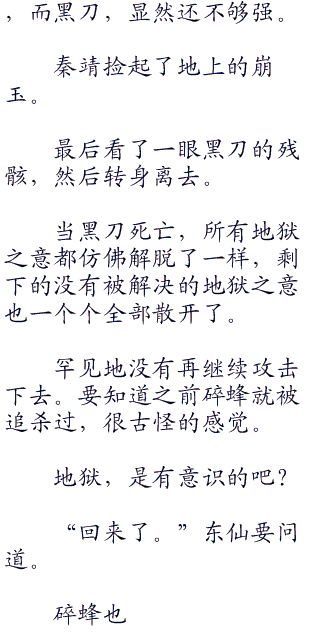 ，而黑刀，显然还不够强。
秦靖捡起了地上的崩
玉。
最后看了一眼黑刀的残
骸，然后转身离去。
当黑刀死亡，所有地狱
之意都仿佛解脱了一样，剩
下的没有被解决的地狱之意
也一个个全部散开了。
罕见地没有再继续攻击
下去。要知道之前碎蜂就被
追杀过，很古怪的感觉。
地狱，是有意识的吧？
“回来了。”东仙要问
道。
碎蜂也